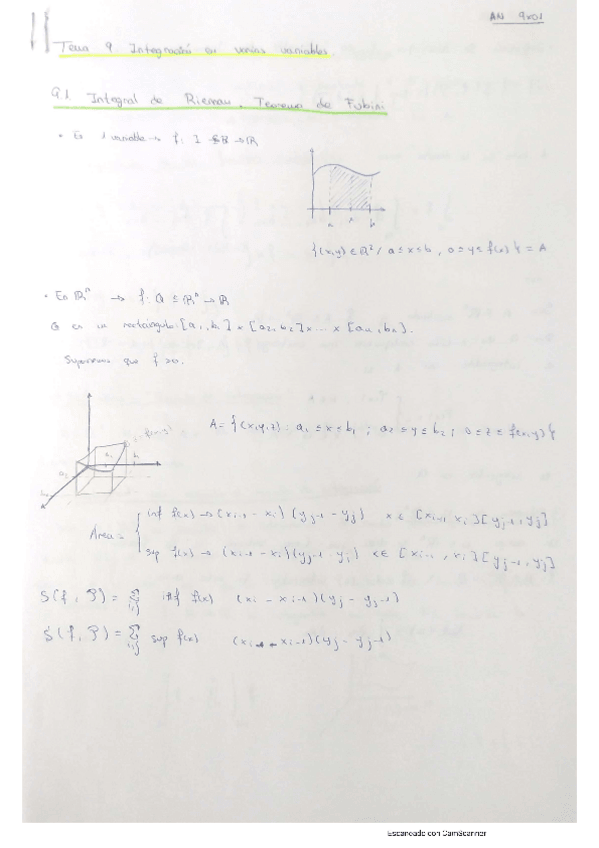 AN 9x01
Tema 9. Integración en varias variables.
9.1 Integral de Rieman. Teorema de Fubini
• En 1 variable → f: I ⊆ ℝ → ℝ
a x b
{(x,y) ∈ ℝ² / a ≤ x ≤ b, 0 ≤ y ≤ f(x)} = A
• En ℝⁿ → f: Q ⊆ ℝⁿ → ℝ
Q es un rectángulo: [a₁, b₁] × [a₂, b₂] × ... × [aₙ, bₙ].
Suponemos que f ≥ 0.
A = {(x,y,z) : a₁ ≤ x ≤ b₁ ; a₂ ≤ y ≤ b₂ ; 0 ≤ z ≤ f(x,y)}
f(x,y)
a₂ a₁ b₁
inf f(x) → (xᵢ₋₁ − xᵢ)(yⱼ₋₁ − yⱼ) x ∈ [xᵢ₋₁, xᵢ][yⱼ₋₁, yⱼ]
Área =
sup f(x) → (xᵢ₋₁ − xᵢ)(yⱼ₋₁ − yⱼ) x ∈ [xᵢ₋₁, xᵢ][yⱼ₋₁, yⱼ]
S(f, P) = Σ inf f(x) (xᵢ − xᵢ₋₁)(yⱼ − yⱼ₋₁)
i,j
S(f, P) = Σ sup f(x) (xᵢ − xᵢ₋₁)(yⱼ − yⱼ₋₁)
i,j
Escaneado con CamScanner